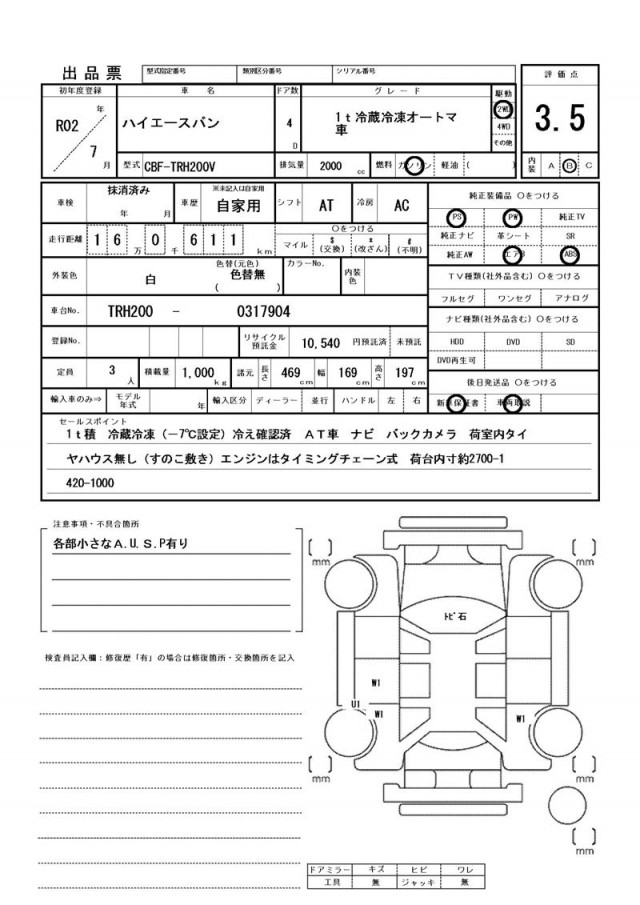 出品票 型式指定番号 類別区分番号 シリアル番号
初年度登録 車名 ドア数 グレード 駆動 評価点
R02 年 7 月 ハイエースバン 4 D 1t冷蔵冷凍オートマ
車
2WD
4WD
その他
3.5
型式 CBF-TRH200V 排気量 2000 cc 燃料 ガソリン 軽油 ( ) 内装 A B C
車検 抹消済み 年 月 車歴 ※未記入は自家用 自家用 シフト AT 冷房 AC
純正装備品 Oをつける
走行距離 16万0千611km Oをつける
マイル $(交換) *(改ざん) #(不明)
PS PW 純正TV
純正ナビ 革シート SR
純正AW エアB ABS
外装色 白 色替(元色) 色替無 ( ) カラーNo. 内装色
TV種類(社外品含む) Oをつける
フルセグ ワンセグ アナログ
車台No. TRH200 - 0317904
ナビ種類(社外品含む) Oをつける
登録No. リサイクル預託金 10,540 円預託済 未預託
HDD DVD SD
DVD再生可
定員 3人 積載量 1,000kg 諸元 長さ 469cm 幅 169cm 高さ 197cm
後日発送品 Oをつける
輸入車のみ⇒ モデル年式 年 輸入区分 ディーラー 並行 ハンドル 左 右
新車保証書 車両取説
セールスポイント
1t積 冷蔵冷凍(-7℃設定)冷え確認済 AT車 ナビ バックカメラ 荷室内タイ
ヤハウス無し(すのこ敷き)エンジンはタイミングチェーン式 荷台内寸約2700-1
420-1000
注意事項・不具合箇所
各部小さなA.U.S.P有り
検査員記入欄:修復歴「有」の場合は修復箇所・交換箇所を記入
[ ] mm [ ] mm
ﾄﾋﾞ石
W1
U1
W1 W1
[ ] mm [ ] mm
[ ] mm
ドアミラー キズ ヒビ ワレ
工具 無 ジャッキ 無